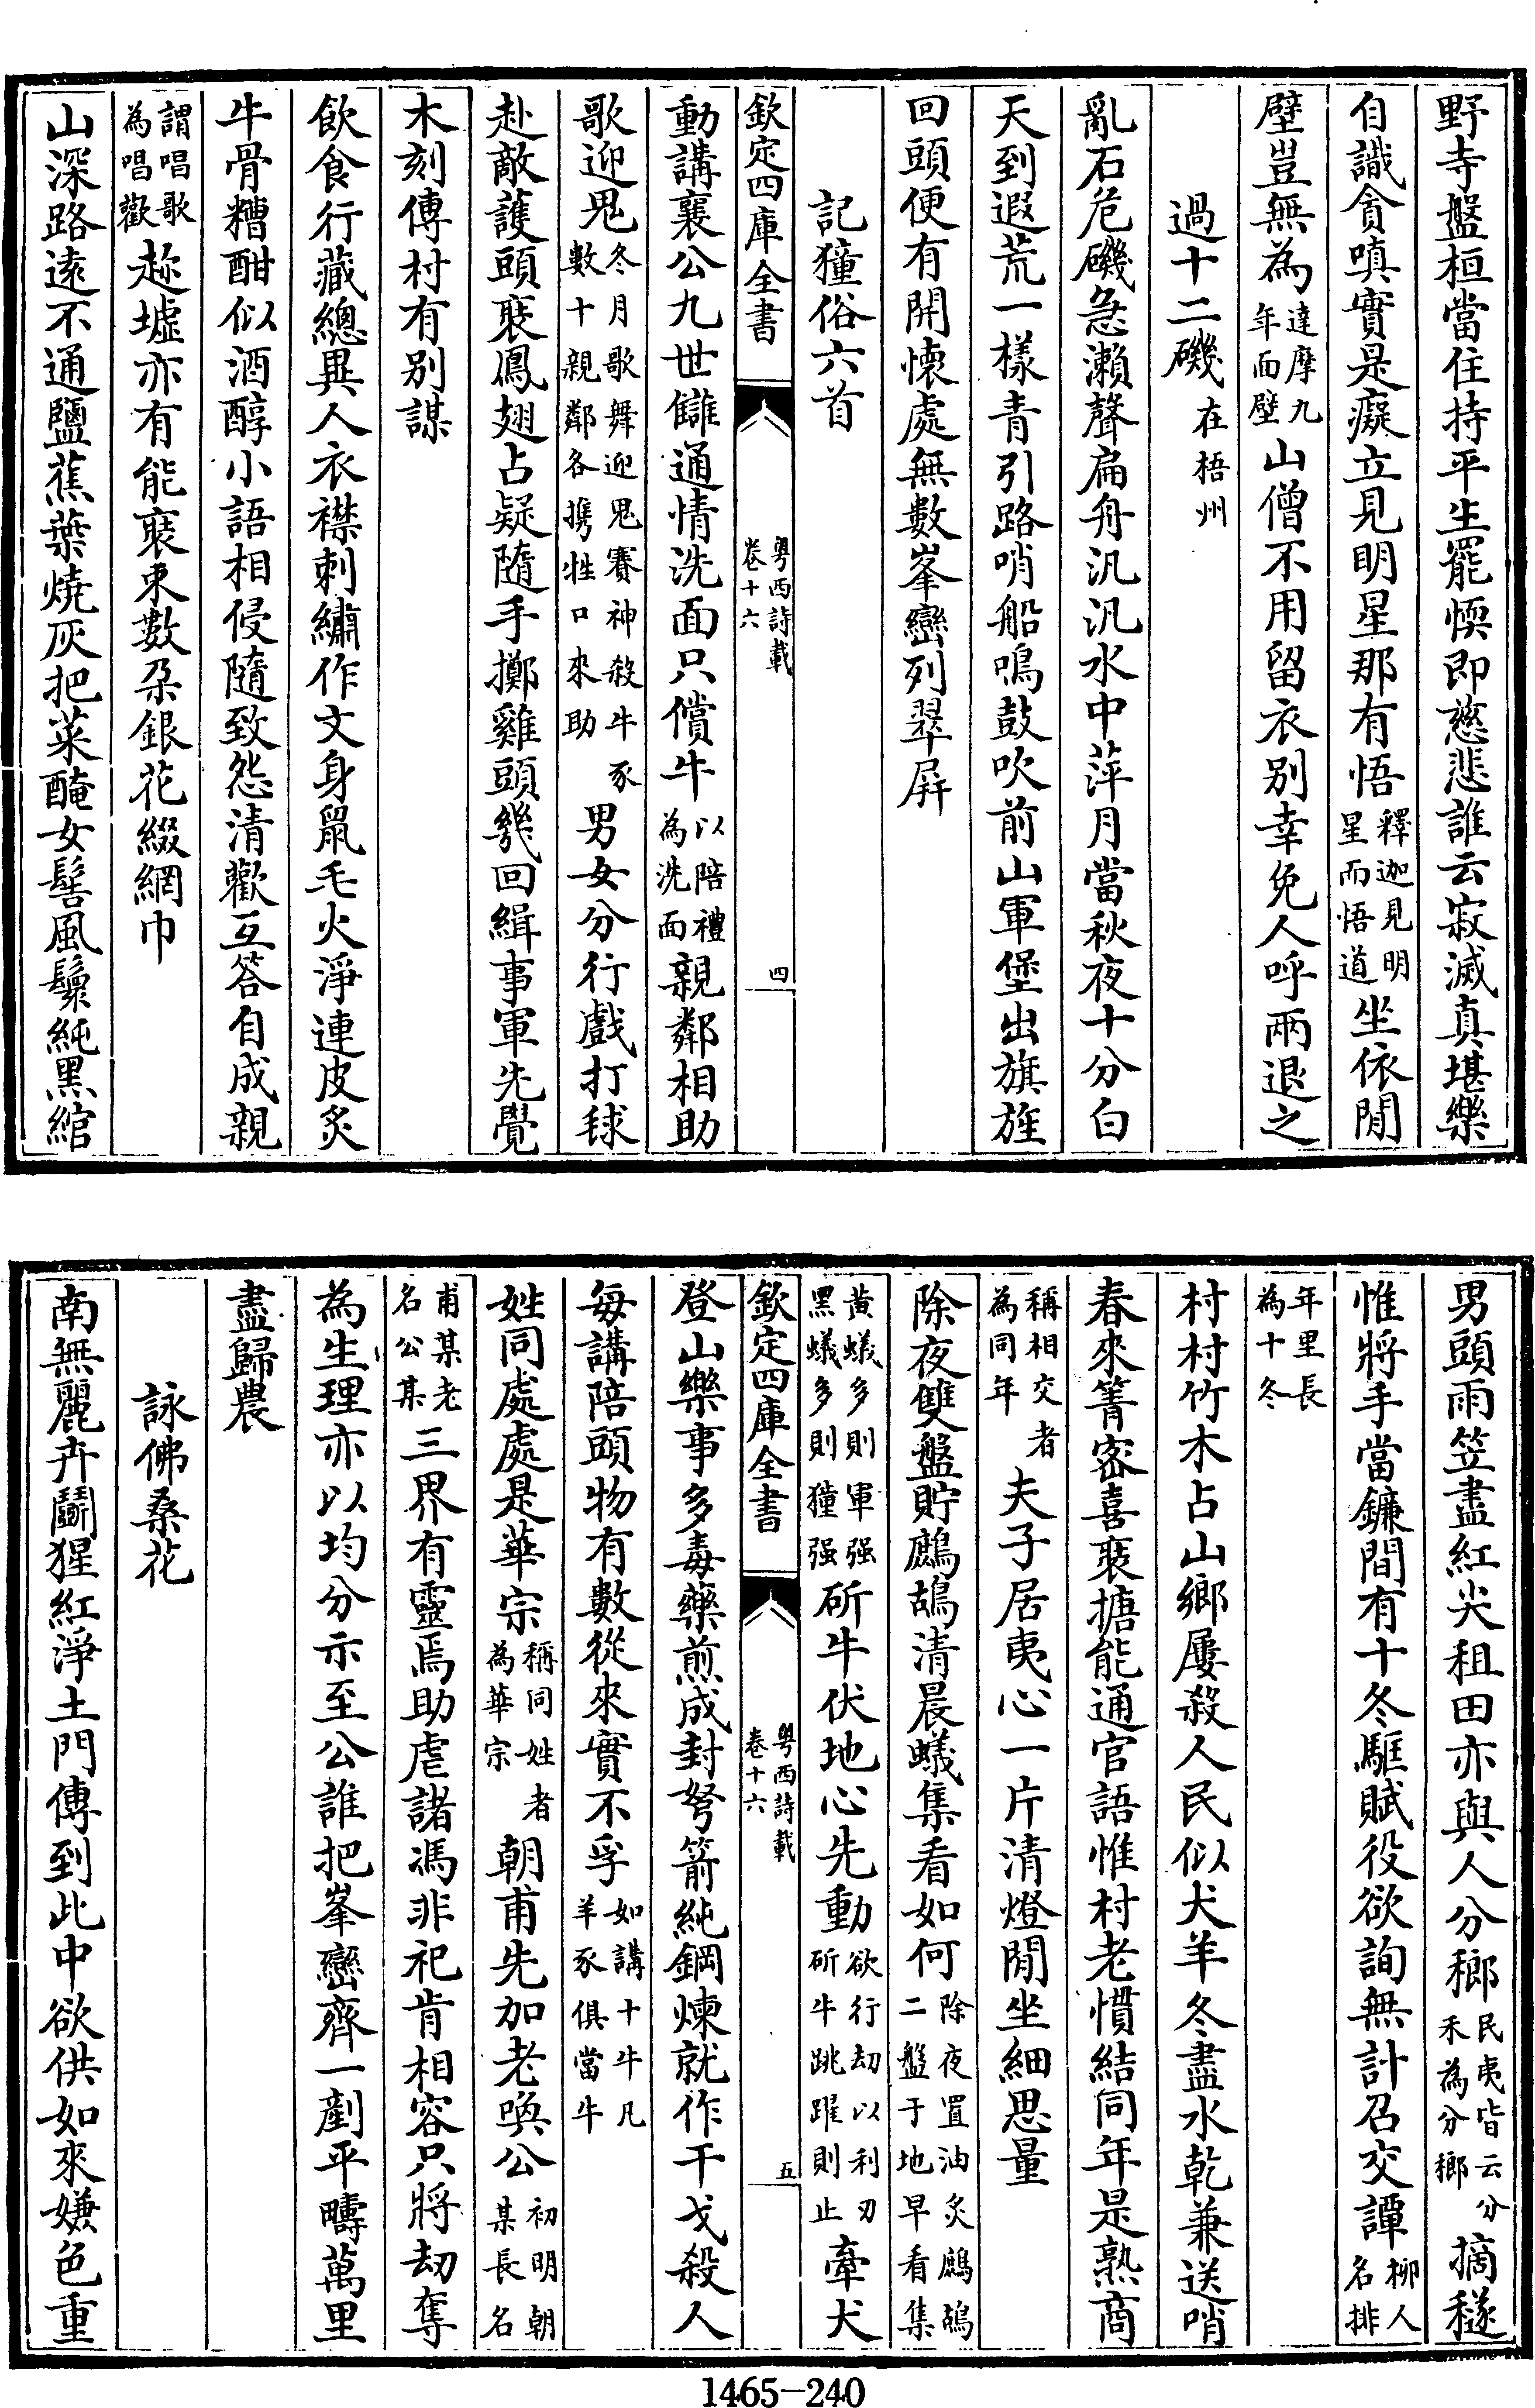 野寺盤桓當住持平生罷愞即慈悲誰云寂滅真堪樂
自識貪嗔實是癡立見明星那有悟釋迦見明星而悟道坐依閒
壁豈無為達摩九年面壁山僧不用留衣别幸免人呼兩退之
過十二磯在梧州
亂石危磯急瀨聲扁舟汎汎水中萍月當秋夜十分白
天到遐荒一樣青引路哨船鳴鼓吹前山軍堡出旗旌
回頭便有開懷處無數峯巒列翠屏
記獞俗六首
欽定四庫全書
粤西詩載
卷十六
四
動講襄公九世讎通情洗面只償牛以陪禮為洗面親鄰相助
歌迎鬼冬月歌舞迎鬼賽神殺牛豕數十親鄰各携牲口來助男女分行戲打毬
赴敵䕶頭裹鳳翅占疑隨手擲雞頭幾回緝事軍先覺
木刻傳村有别謀
飲食行藏總異人衣襟刺繡作文身鼠毛火淨連皮炙
牛骨糟酣似酒醇小語相侵隨致怨清歡互答自成親
謂唱歌為唱歡趂墟亦有能裹束數朶銀花綴網巾
山深路逺不通鹽蕉葉燒灰把菜醃女髻風鬟純黑綰
男頭雨笠盡紅尖租田亦與人分𥠖民夷皆云分禾為分𥠖摘𥡜
惟將手當鐮間有十冬駈賦役欲詢無計召交譚柳人名排
年里長為十冬
村村竹木占山鄉屢殺人民似犬羊冬盡水乾兼送哨
春來箐宻喜裹搪能通官語惟村老慣結同年是熟商
稱相交者為同年夫子居夷心一片清燈閒坐細思量
除夜雙盤貯鷓鴣清晨蟻集看如何除夜置油炙鷓鴣二盤于地早看集
黄蟻多則軍强黑蟻多則獞强斫牛伏地心先動欲行刼以利刃斫牛跳躍則止牽犬
欽定四庫全書
粤西詩載
卷十六
五
登山樂事多毒藥煎成封弩箭純鋼煉就作干戈殺人
每講陪頭物有數從來實不孚如講十牛凡羊豕俱當牛
姓同處處是華宗稱同姓者為華宗朝甫先加老喚公初明朝某長名
甫某老名公某三界有靈焉助虐諸馮非祀肯相容只將刼奪
為生理亦以均分示至公誰把峯巒齊一剷平疇萬里
盡歸農
詠佛桑花
南無麗卉鬬猩紅淨土門傳到此中欲供如來嫌色重
1465-240